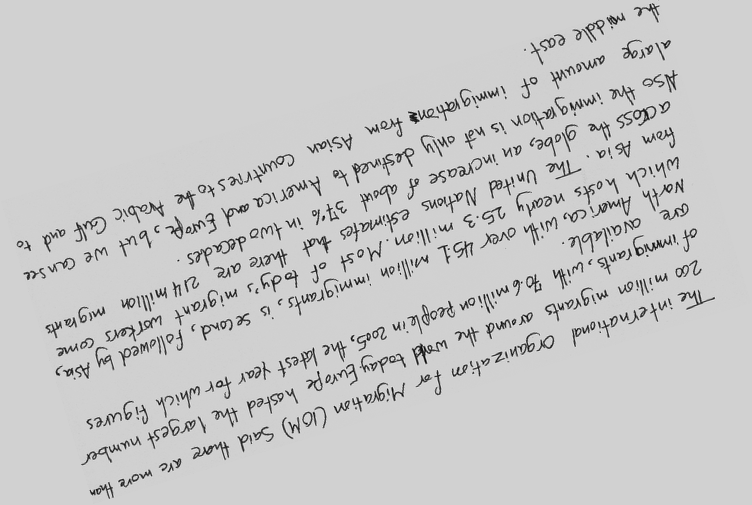 The international Organization for Migration (IOM) said there are more than
200 million migrants around the world today Europe hosted the largest number
of immigrants, with 70.6 million people in 2005, the latest year for which figures
are available.
North America, with over 45.1 million immigrants, is second, followed by Asia,
which hosts nearly 25.3 million. Most of tody's migrant workers come
from Asia. The United Nations estimates that there are 214 million migrants
across the globe, an increase of about 37% in two decades.
Also the immigration is not only destined to America and Europe, but we can see
alarge amount of immigrations from Asian countries to the Arabic Gulf and to
the middle east.